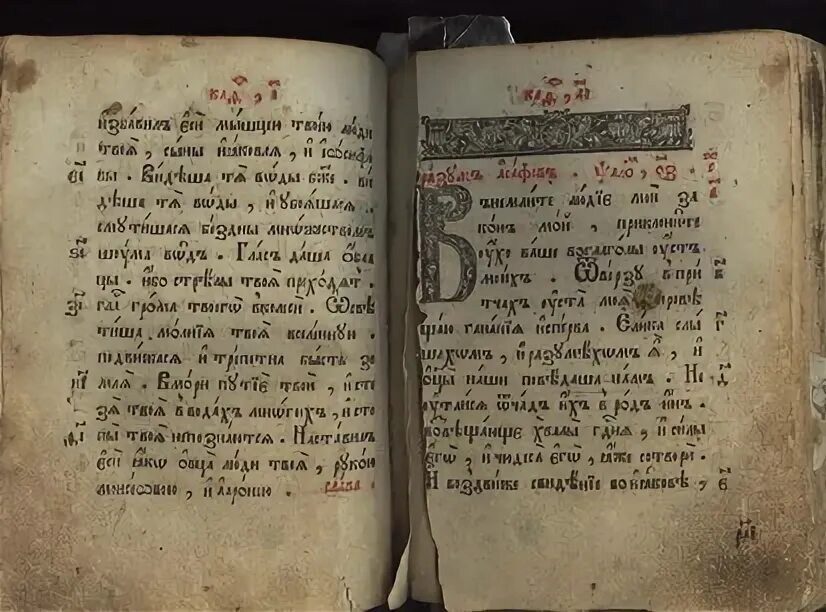 каѳ , і
избавилъ єси мышцєю твоєю люди
твоя , сыны іаковля , и іосифо
вы . Видѣша тя воды бжє . ви
дѣша тя воды , и убояшася
смутишася бєздны множєством
шума водъ . Гласъ даша обла
цы . ибо стрѣлы твоя приходятъ .
гла грома твоєго в колєси . Ѿсвѣ
тиша молния твоя всєлєнную .
подвижєся и трєпєтна бысть зє
мля . В мори путиє твои , и стє
зя твоя в водахъ многихъ , и сто
пы твоя нє познаются . Наставилъ
єси яко овца люди твоя , рукою
моисєовою , и аароню . слава
каѳ , аі
разумъ асафовъ . ѱало , оз
Вънємлитє людиє мои за
конъ мой , приклонитє
ухо вашє во глаголы устъ
моихъ . Ѿвєрзу в при
тчахъ уста моя , провѣ
щаю ганания испєрва . Єлика слы
шахомъ , и разумѣхомъ я , и
отцы наши повѣдаша намъ . Нє
утаися ѿ чадъ ихъ в родъ инъ .
возвѣщающє хвалы гдня , и силы
єго , и чюдєса єго , яжє сотвори .
И воздвижє свидѣниє во іаковѣ ,